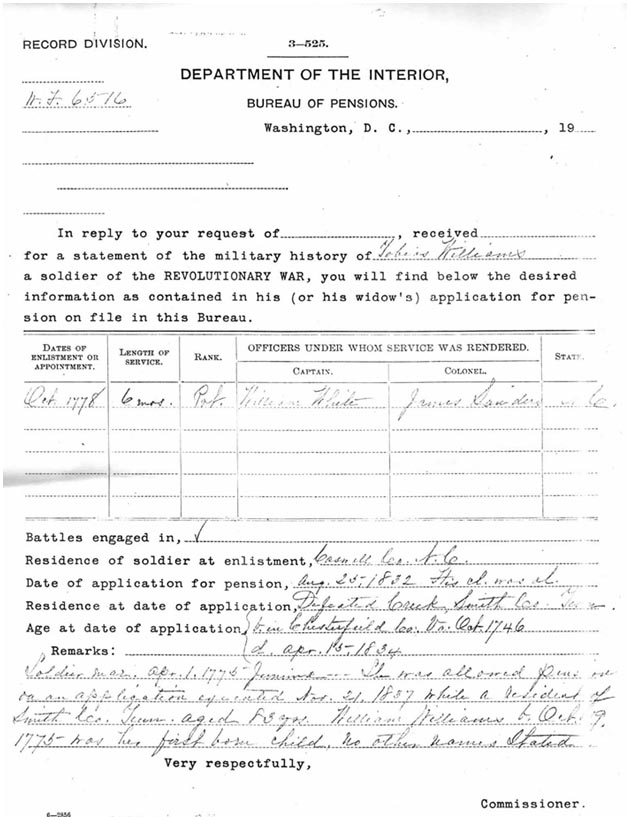 RECORD DIVISION.
3—525.
DEPARTMENT OF THE INTERIOR,
W.F. 6516
BUREAU OF PENSIONS.
Washington, D. C., , 19
In reply to your request of , received
for a statement of the military history of Tobias Williams
a soldier of the REVOLUTIONARY WAR, you will find below the desired
information as contained in his (or his widow's) application for pen-
sion on file in this Bureau.
DATES OF ENLISTMENT OR APPOINTMENT.
LENGTH OF SERVICE.
RANK.
OFFICERS UNDER WHOM SERVICE WAS RENDERED.
CAPTAIN.
COLONEL.
STATE.
Oct. 1778 6 mos. Pvt. William White James Sanders N.C.
Battles engaged in,
Residence of soldier at enlistment, Caswell Co. N.C.
Date of application for pension, Aug. 25-1832 His cl. was al.
Residence at date of application, Defeated Creek, Smith Co. Tenn.
Age at date of application, b. in Chesterfield Co. Va. Oct. 1746
Remarks: d. Apr. 15-1834
Soldier mar. Apr. 1. 1775- Jemima She was allowed pension
on an application executed Nov. 21, 1837 while a resident of
Smith Co. Tenn. aged 83 yrs. William Williams b. Oct. 9.
1775- was her first born child, no other names stated
Very respectfully,
Commissioner.
6—2856